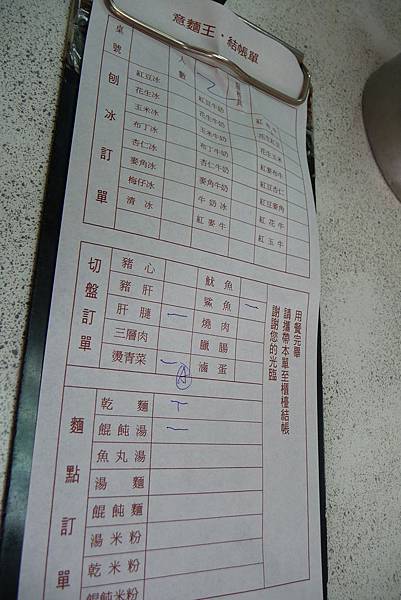 意麵王・結帳單
桌號 人數 服務員
刨冰訂單
紅豆冰 紅豆牛奶
花生冰 花生牛奶 花生紅豆
玉米冰 玉米牛奶 花生玉米
布丁冰 布丁牛奶 紅麥布牛
杏仁冰 杏仁牛奶 紅豆杏仁
麥角冰 麥角牛奶 紅豆麥角
梅仔冰 牛奶冰 紅花牛
清冰 紅麥牛 紅玉牛
切盤訂單
豬心 魷魚
豬肝 鯊魚 一
肝膁 一 燒肉
三層肉 臘腸
燙青菜 一 A 滷蛋
用餐完畢
請攜帶本單至櫃檯結帳
謝謝您的光臨
麵點訂單
乾麵 丅
餛飩湯 一
魚丸湯
湯麵
餛飩麵
湯米粉
乾米粉
餛飩米粉